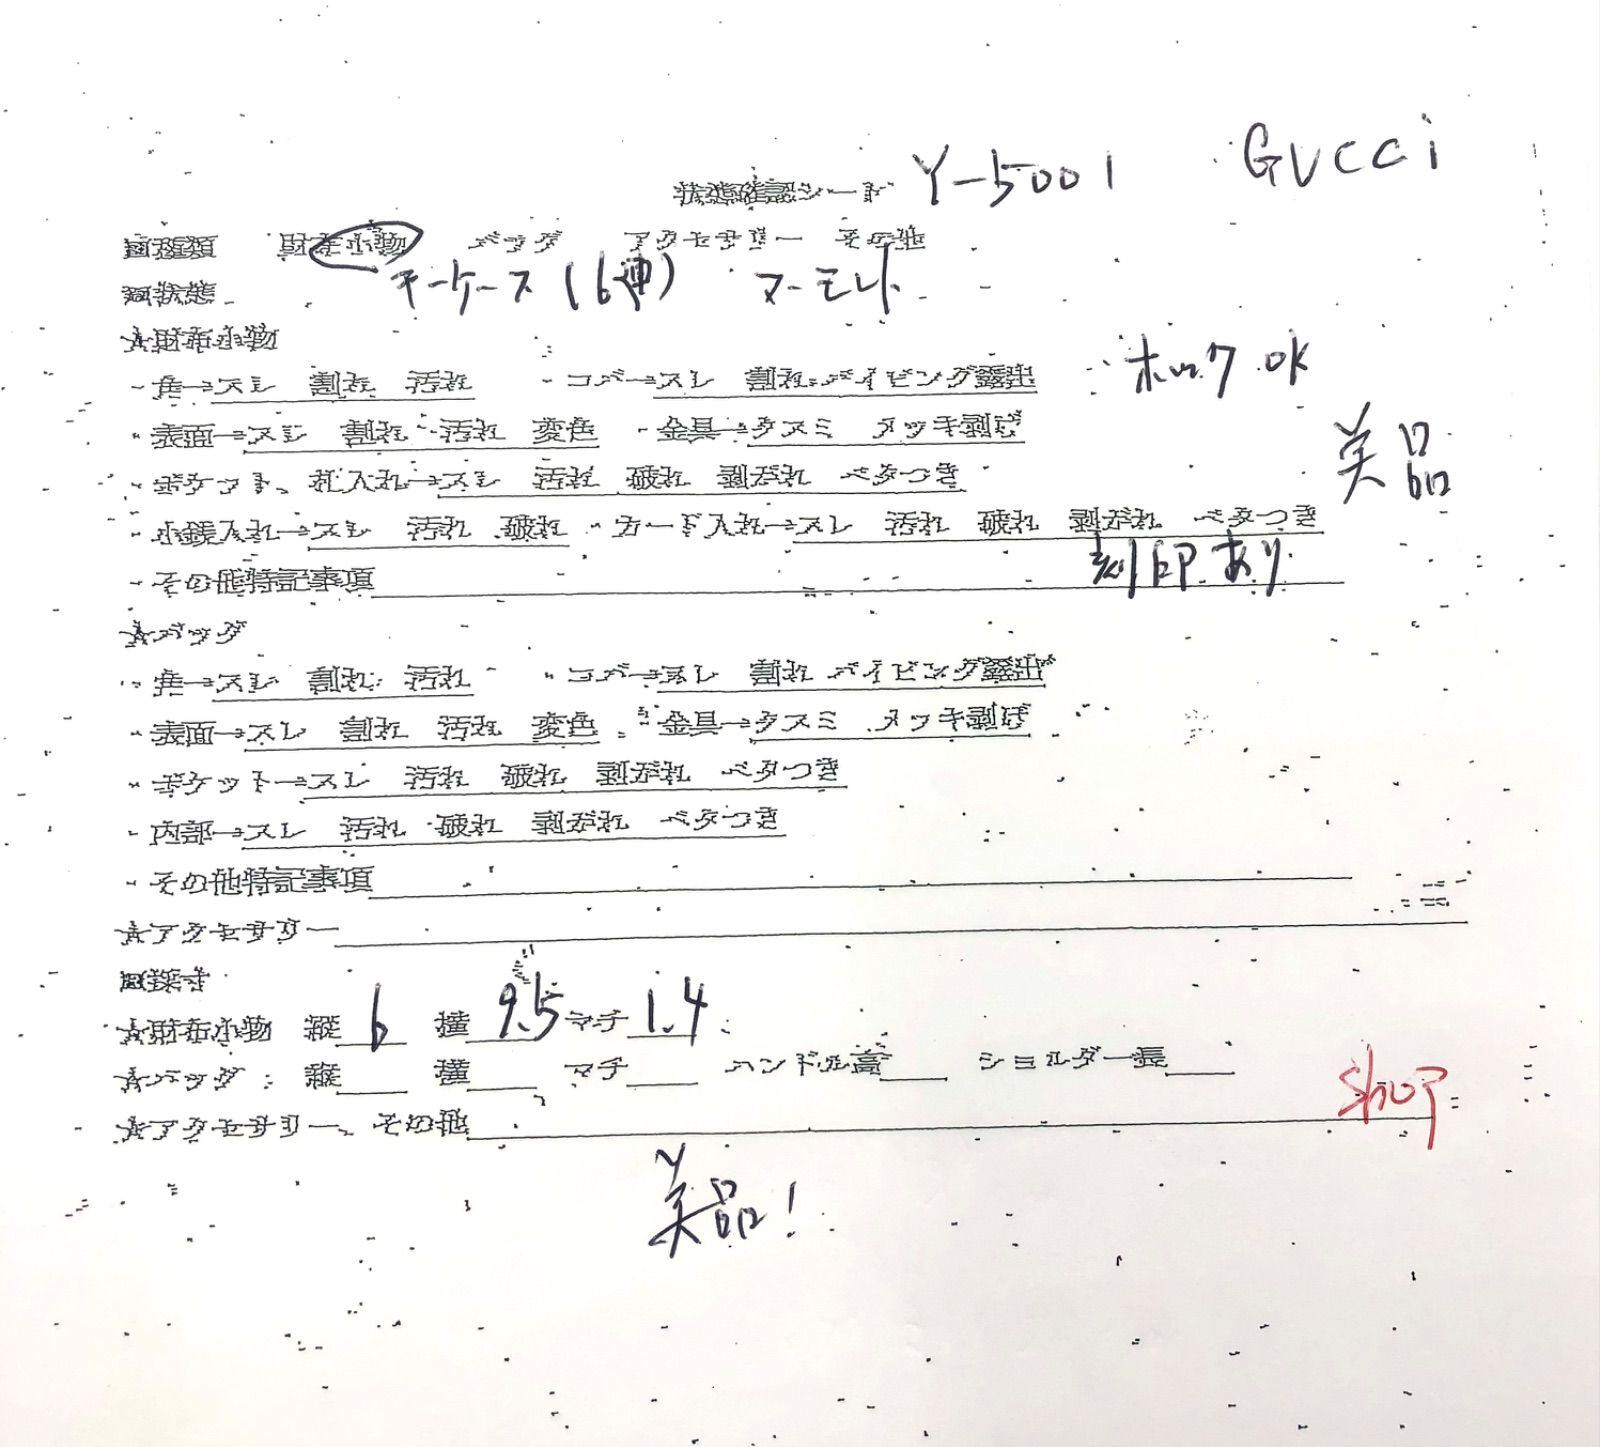 状態確認シート Y-5001 GUCCI
□種類 財布小物 バッグ アクセサリー その他
□状態 キーケース(6連) マーモント
☆財布小物
・角→スレ 割れ 汚れ ・コバ→スレ 割れ パイピング露出 ホックOK
・表面→スレ 割れ 汚れ 変色 ・金具→クスミ メッキ剥げ 美品
・ポケット、札入れ→スレ 汚れ 破れ 剥がれ ベタつき
・小銭入れ→スレ 汚れ 破れ ・カード入れ→スレ 汚れ 破れ 剥がれ ベタつき
・その他特記事項 刻印あり
☆バッグ
・角→スレ 割れ 汚れ ・コバ→スレ 割れ パイピング露出
・表面→スレ 割れ 汚れ 変色 ・金具→クスミ メッキ剥げ
・ポケット→スレ 汚れ 破れ 剥がれ ベタつき
・内部→スレ 汚れ 破れ 剥がれ ベタつき
・その他特記事項
☆アクセサリー
□採寸
☆財布小物 縦 6 横 9.5 マチ 1.4
☆バッグ 縦 横 マチ ハンドル高 ショルダー長
☆アクセサリー、その他 SHOP
美品!